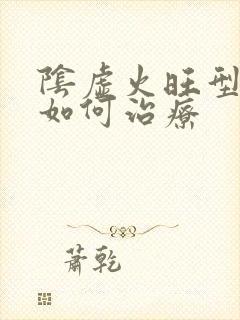 陰虛火旺型
如何治療
蕭乾